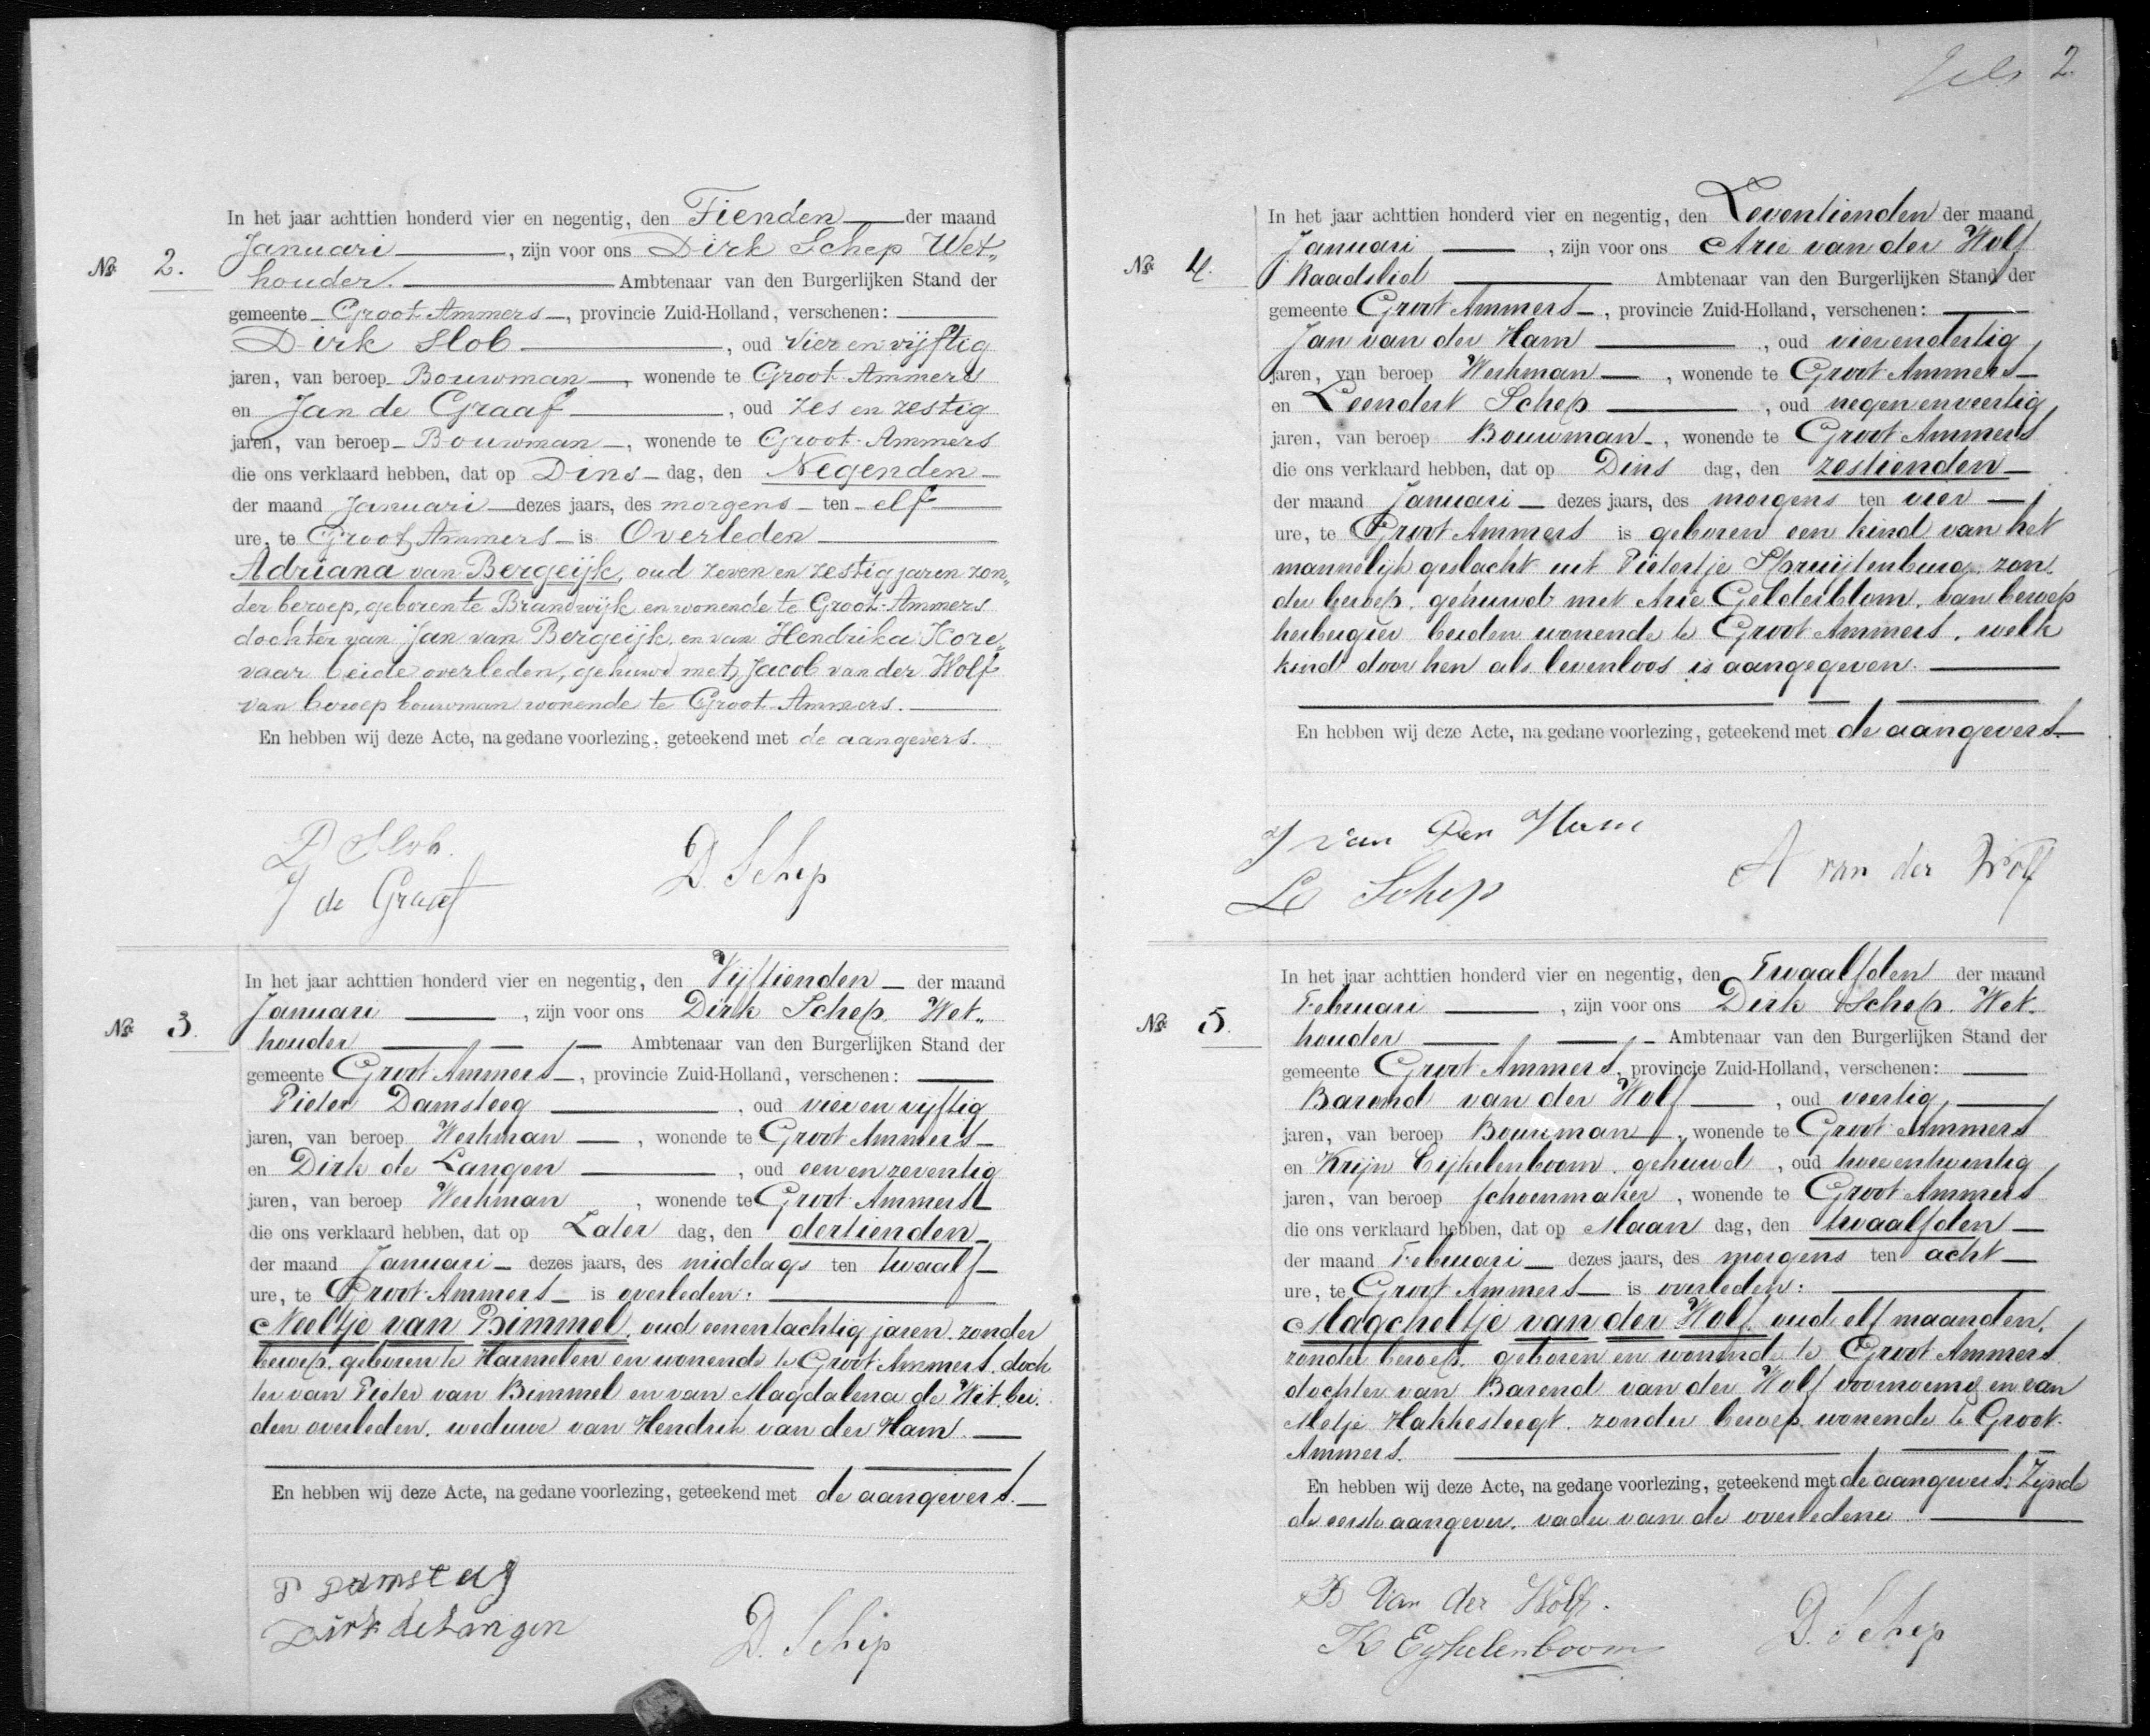 2
In het jaar achttien honderd vier en negentig, den Tienden der maand
Januari, zijn voor ons Dirk Schep Wet„
No. 2. houder. Ambtenaar van den Burgerlijken Stand der
gemeente Groot-Ammers, provincie Zuid-Holland, verschenen:
Dirk Slob, oud vier en vijftig
jaren, van beroep Bouwman, wonende te Groot-Ammers
en Jan de Graaf, oud zes en zestig
jaren, van beroep Bouwman, wonende te Groot-Ammers
die ons verklaard hebben, dat op Dins dag, den Negenden
der maand Januari dezes jaars, des morgens ten elf
ure, te Groot Ammers is Overleden
Adriana van Bergeijk, oud zeven en zestig jaren zon„
der beroep, geboren te Brandwijk en wonende te Groot-Ammers
dochter van Jan van Bergeijk en van Hendrika Kore„
vaar beide overleden, gehuwd met Jacob van der Wolf
van beroep bouwman wonende te Groot-Ammers.
En hebben wij deze Acte, na gedane voorlezing, geteekend met de aangevers.
D Slob.
J de Graaf
D. Schep
In het jaar achttien honderd vier en negentig, den Vijftienden der maand
Januari, zijn voor ons Dirk Schep, Wet„
No. 3. houder Ambtenaar van den Burgerlijken Stand der
gemeente Groot-Ammers, provincie Zuid-Holland, verschenen:
Pieter Damsteeg, oud vier en vijftig
jaren, van beroep Werkman, wonende te Groot-Ammers
en Dirk de Langen, oud een en zeventig
jaren, van beroep Werkman, wonende te Groot-Ammers
die ons verklaard hebben, dat op Zater dag, den dertienden
der maand Januari dezes jaars, des middags ten twaalf
ure, te Groot-Ammers is overleden:
Neeltje van Bimmel, oud eenentachtig jaren, zonder
beroep, geboren te Harmelen en wonende te Groot-Ammers, doch
ter van Pieter van Bimmel en van Magdalena de Wit, bei.
den overleden, weduwe van Hendrik van der Ham
En hebben wij deze Acte, na gedane voorlezing, geteekend met de aangevers.
P Damsteeg
Dirk de Langen
D. Schep
In het jaar achttien honderd vier en negentig, den Zeventienden der maand
Januari, zijn voor ons Arie van der Wolf
No. 4. Raadslid Ambtenaar van den Burgerlijken Stand der
gemeente Groot Ammers, provincie Zuid-Holland, verschenen:
Jan van der Ham, oud vierendertig
jaren, van beroep Werkman, wonende te Groot-Ammers
en Leendert Schep, oud negen en veertig
jaren, van beroep Bouwman, wonende te Groot Ammers
die ons verklaard hebben, dat op Dins dag, den zestienden
der maand Januari dezes jaars, des morgens ten vier
ure, te Groot Ammers is geboren een kind van het
mannelijk geslacht uit Pietertje Spruijtenburg, zon„
der beroep, gehuwd met Arie Gelderblom, van beroep
herbergier beiden wonende te Groot-Ammers, welk
kind door hen als levenloos is aangegeven.
En hebben wij deze Acte, na gedane voorlezing, geteekend met de aangevers.
J van Der Ham
Ld Schep
A van der Wolf
In het jaar achttien honderd vier en negentig, den Twaalfden der maand
Februari, zijn voor ons Dirk Schep, Wet.
No. 5. houder Ambtenaar van den Burgerlijken Stand der
gemeente Groot-Ammers, provincie Zuid-Holland, verschenen:
Barend van der Wolf, oud veertig
jaren, van beroep Bouwman, wonende te Groot-Ammers
en Krijn Eijkelenboom, gehuwd, oud tweeentwintig
jaren, van beroep schoenmaker, wonende te Groot-Ammers
die ons verklaard hebben, dat op Maan dag, den twaalfden
der maand Februari dezes jaars, des morgens ten acht
ure, te Groot-Ammers is overleden:
Magcheltje van der Wolf, oud elf maanden,
zonder beroep, geboren en wonende te Groot-Ammers
dochter van Barend van der Wolf voornoemd en van
Metje Hakkesteegt, zonder beroep, wonende te Groot-
Ammers.
En hebben wij deze Acte, na gedane voorlezing, geteekend met de aangevers, zijnde
de eerste aangever, vader van de overledene.
B Van der Wolf.
K Eykelenboom
D. Schep